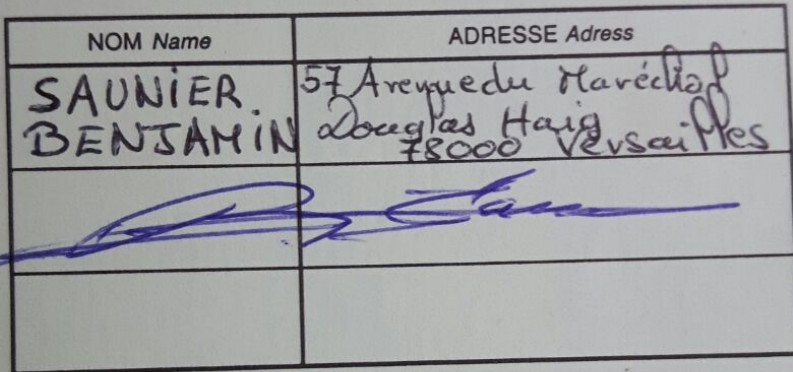 NOM Name
ADRESSE Adress
SAUNIER.
BENJAMIN
57 Avenue du Maréchal
Douglas Haig
78000 Versailles